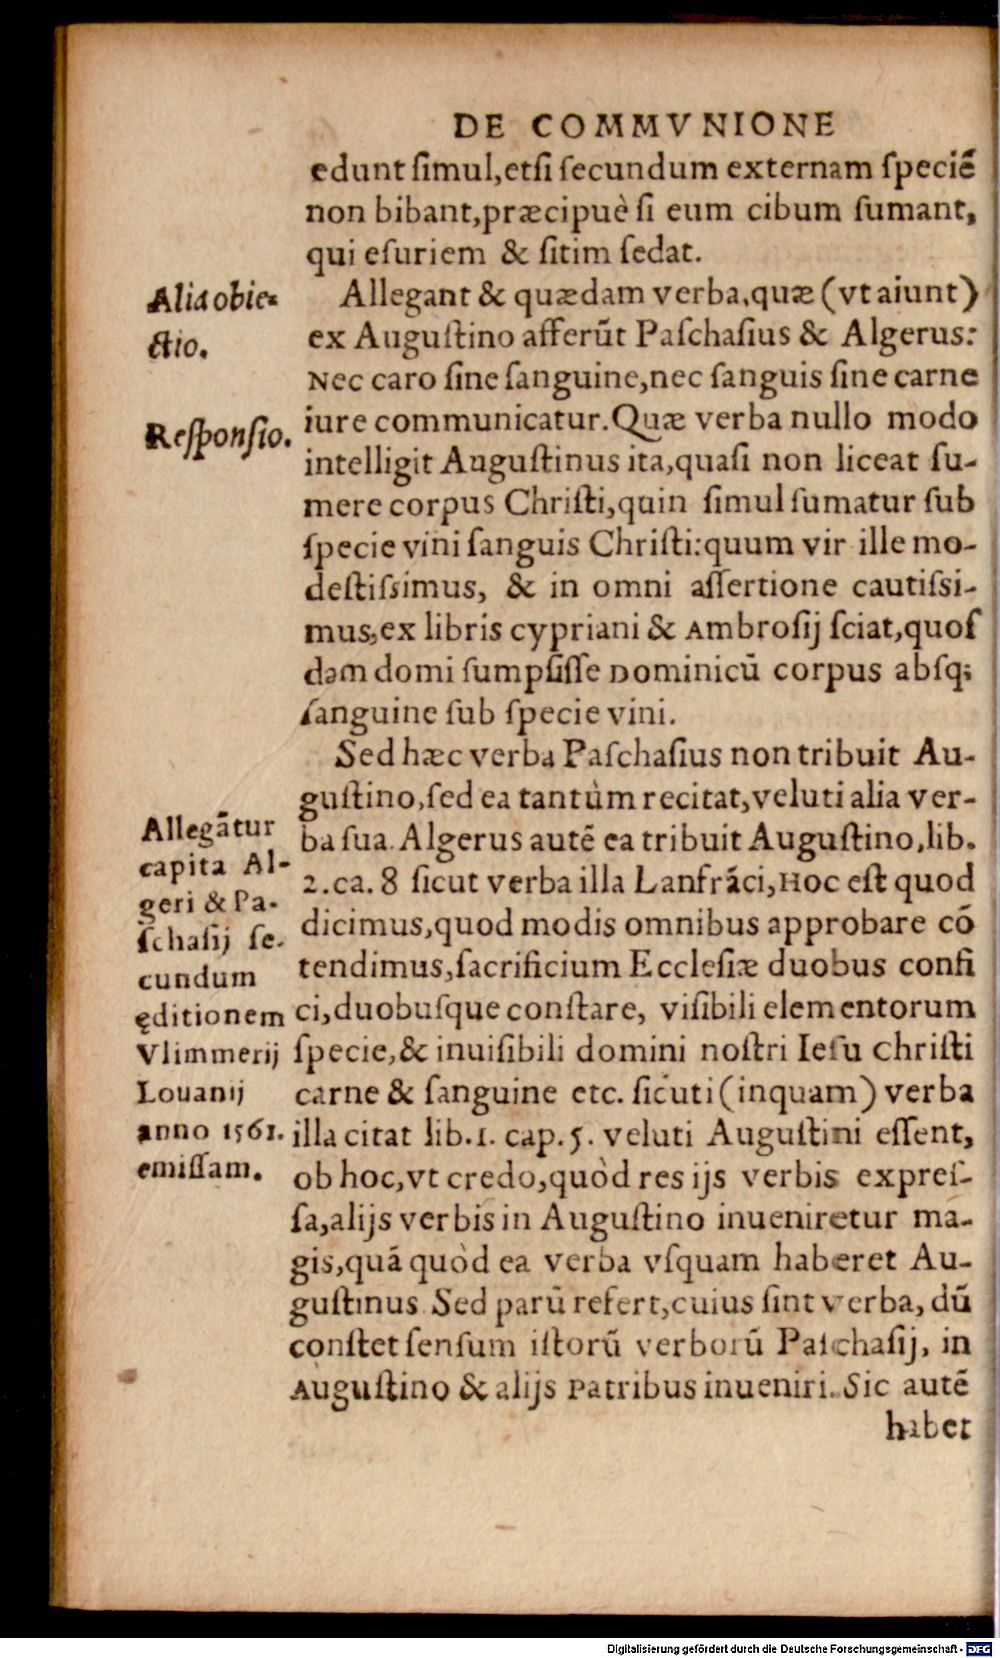 DE COMMVNIONE
edunt ſimul,etſi ſecundum externam ſpeciē
non bibant,præcipuè ſi eum cibum ſumant,
qui eſuriem & ſitim ſedat.
Allegant & quædam verba,quæ (vt aiunt)
ex Auguſtino afferūt Paſchaſius & Algerus:
Nec caro ſine ſanguine,nec ſanguis ſine carne
iure communicatur.Quæ verba nullo modo
intelligit Auguſtinus ita,quaſi non liceat ſu-
mere corpus Chriſti,quin ſimul ſumatur ſub
ſpecie vini ſanguis Chriſti:quum vir ille mo-
deſtiſsimus, & in omni aſſertione cautiſsi-
mus,ex libris cypriani & Ambroſij ſciat,quoſ
dam domi ſumpſiſſe Dominicū corpus abſq;
ſanguine ſub ſpecie vini.
Sed hæc verba Paſchaſius non tribuit Au-
guſtino,ſed ea tantùm recitat,veluti alia ver-
ba ſua. Algerus autē ea tribuit Auguſtino,lib.
2.ca. 8 ſicut verba illa Lanfrāci,Hoc eſt quod
dicimus,quod modis omnibus approbare cō
tendimus,ſacrificium Eccleſiæ duobus confi
ci,duobuſque conſtare, viſibili elementorum
ſpecie,& inuiſibili domini noſtri Ieſu chriſti
carne & ſanguine etc. ſicuti (inquam) verba
illa citat lib.1. cap.5. veluti Auguſtini eſſent,
ob hoc,vt credo,quòd res ijs verbis expreſ-
ſa,alijs verbis in Auguſtino inueniretur ma-
gis,quā quòd ea verba vſquam haberet Au-
guſtinus. Sed parū refert,cuius ſint verba, dū
conſtet ſenſum iſtorū verborū Paſchaſij, in
Auguſtino & alijs Patribus inueniri. Sic autē
habet
Alia obie-
ctio.
Reſponſio.
Allegātur
capita Al-
geri & Pa-
ſchaſij ſe-
cundum
ęditionem
Vlimmerij
Louanij
anno 1561.
emiſſam.
Digitalisierung gefördert durch die Deutsche Forschungsgemeinschaft - DFG